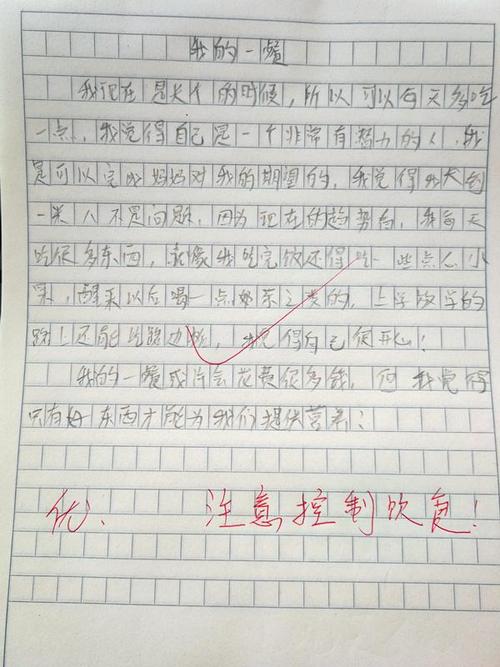 我的一餐
我现在是长个的时候,所以可以每天多吃
一点,我觉得自己是一个非常有潜力的人,我
是可以完成妈妈对我的期望的,我觉得我长到
一米八不是问题,因为现在的趋势看,我每天
吃很多东西,就像我吃完饭还得吃一些点心水
果,醒来以后喝一点奶茶之类的,上学放学的
路上还能吃路边 ,我觉得自己很开心!
我的一餐或许会花费很多钱,但我觉得
只有好东西才能为我们提供营养!
优、 注意控制饮食!